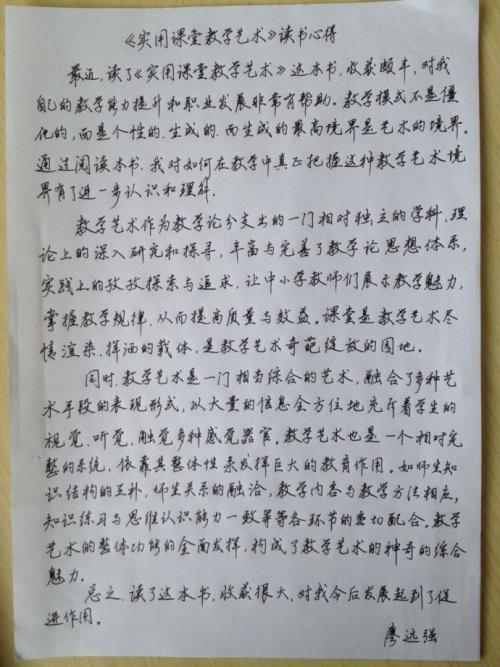 《实用课堂教学艺术》读书心得
最近，读了《实用课堂教学艺术》这本书，收获颇丰，对我
自己的教学能力提升和职业发展非常有帮助。教学模式不是僵
化的，而是个性的、生成的，而生成的最高境界是艺术的境界。
通过阅读本书，我对如何在教学中真正把握这种教学艺术境
界有了进一步认识和理解。
教学艺术作为教学论分支出的一门相对独立的学科，理
论上的深入研究和探寻，丰富与完善了教学论思想体系，
实践上的孜孜探索与追求，让中小学教师们展示教学魅力，
掌握教学规律，从而提高质量与效益。课堂是教学艺术尽
情渲染、挥洒的载体，是教学艺术奇葩绽放的园地。
同时，教学艺术是一门相当综合的艺术，融合了多种艺
术手段的表现形式，以大量的信息全方位地充斥着学生的
视觉、听觉、触觉多种感觉器官。教学艺术也是一个相对完
整的系统，依靠其整体性来发挥巨大的教育作用。如师生知
识结构的互补，师生关系的融洽，教学内容与教学方法相应，
知识练习与思维认识能力一致等等各环节的密切配合。教学
艺术的整体功能的全面发挥，构成了教学艺术的神奇的综合
魅力。
总之，读了这本书，收获很大，对我今后发展起到了促
进作用。
廖远强